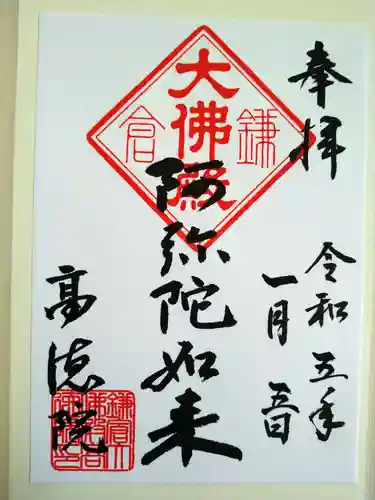 奉拝
令和五年
一月五日
鎌倉
大佛殿
阿弥陀如来
高徳院